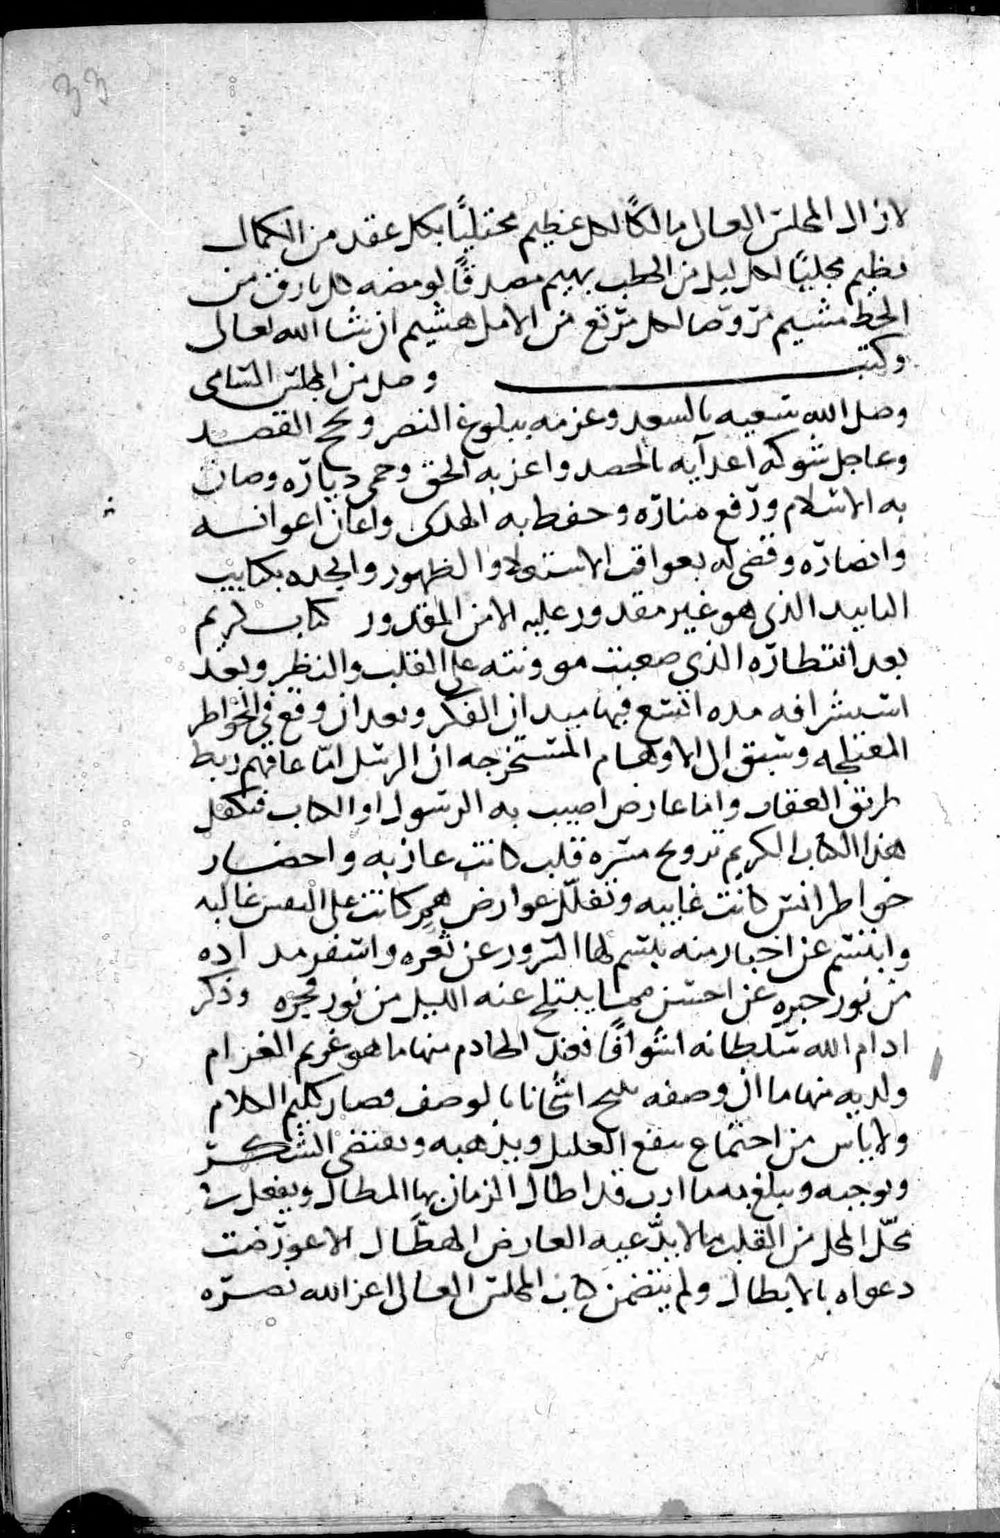 33
لا زال المجلس العالى مالكًا لكل عظيم محتليًا بكل عقد من الكمال
نظيم مجليًا لكل ليل من الخطب بهيم مصدقًا لومضه كل بارق من
الحظ مشيم مروّضا لكل مرتع من الامل هشيم ان شا الله تعالى
وكتب وصل من المجلس السامى
وصل الله سعيه بالسعد وعزمه ببلوغ النصر ونجح القصد
وعاجل شوكه اعدآيه بالحصد واعز به الحق وحمى دياره وصان
به الاسلام ورفع مناره وحفظ به الهدى واعان اعوانه
وانصاره وقضى له بعواقب الاستيلا والظهور وانجده بكتايب
التاييد الذى هو غير مقدور عليه الا من المقدور كتاب كريم
بعد انتظاره الذى صعبت موونته على القلب والنظر وبعد
استشرافه مده اتسع فيها ميدان الفكر وبعد ان وقع فى الخواطر
وسبق الى الاوهام المستخرجه ان الرسل اما عاقهم ربط
طريق العقار واما عارض اصيب به الرسول او الكتاب فتكفل
هذا الكتاب الكريم بترويح مسره قلب كانت عازبه واحضار
خواطر انس كانت غايبه وتفلّل عوارض همٍ كانت على النفس غالبه
وابتسم عن اخبار منه يبتسم لها السرور عن ثغره واسفر مداده
من نور حبره عن احسن مما يبتلج عنه الليل من نور فجره وذكر
ادام الله سلطانه اشواقًا فعند الخادم منها ما هو غريم الغرام
ولديه منها ما ان وصفه اثخانا بالوصف فصار كليم الكلام
ولا ياس من اجتماع ينقع الغليل ويذهبه ويقتضى الشكر
ويوجبه ويبلغ به مآرب قد اطال الزمان بها المطال ويفعل فى
محل المحل من القلب ما لا يدّعيه العارض الهطّال الا عورضت
دعواه بالابطال ولم يتضمن كتاب المجلس العالى اعز الله نصره